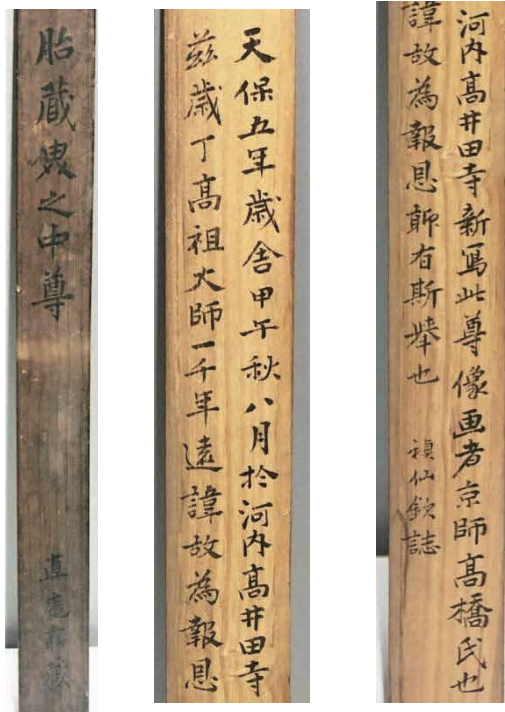 胎蔵之中尊
天保五年歳舎甲午秋八月於河内髙井田寺
兹歳丁髙祖大師一千年遠諱故為報恩
河内髙井田寺新寫此尊像画者京師髙橋氏也
諱故為報恩聊有斯挙也 禎仙欽誌